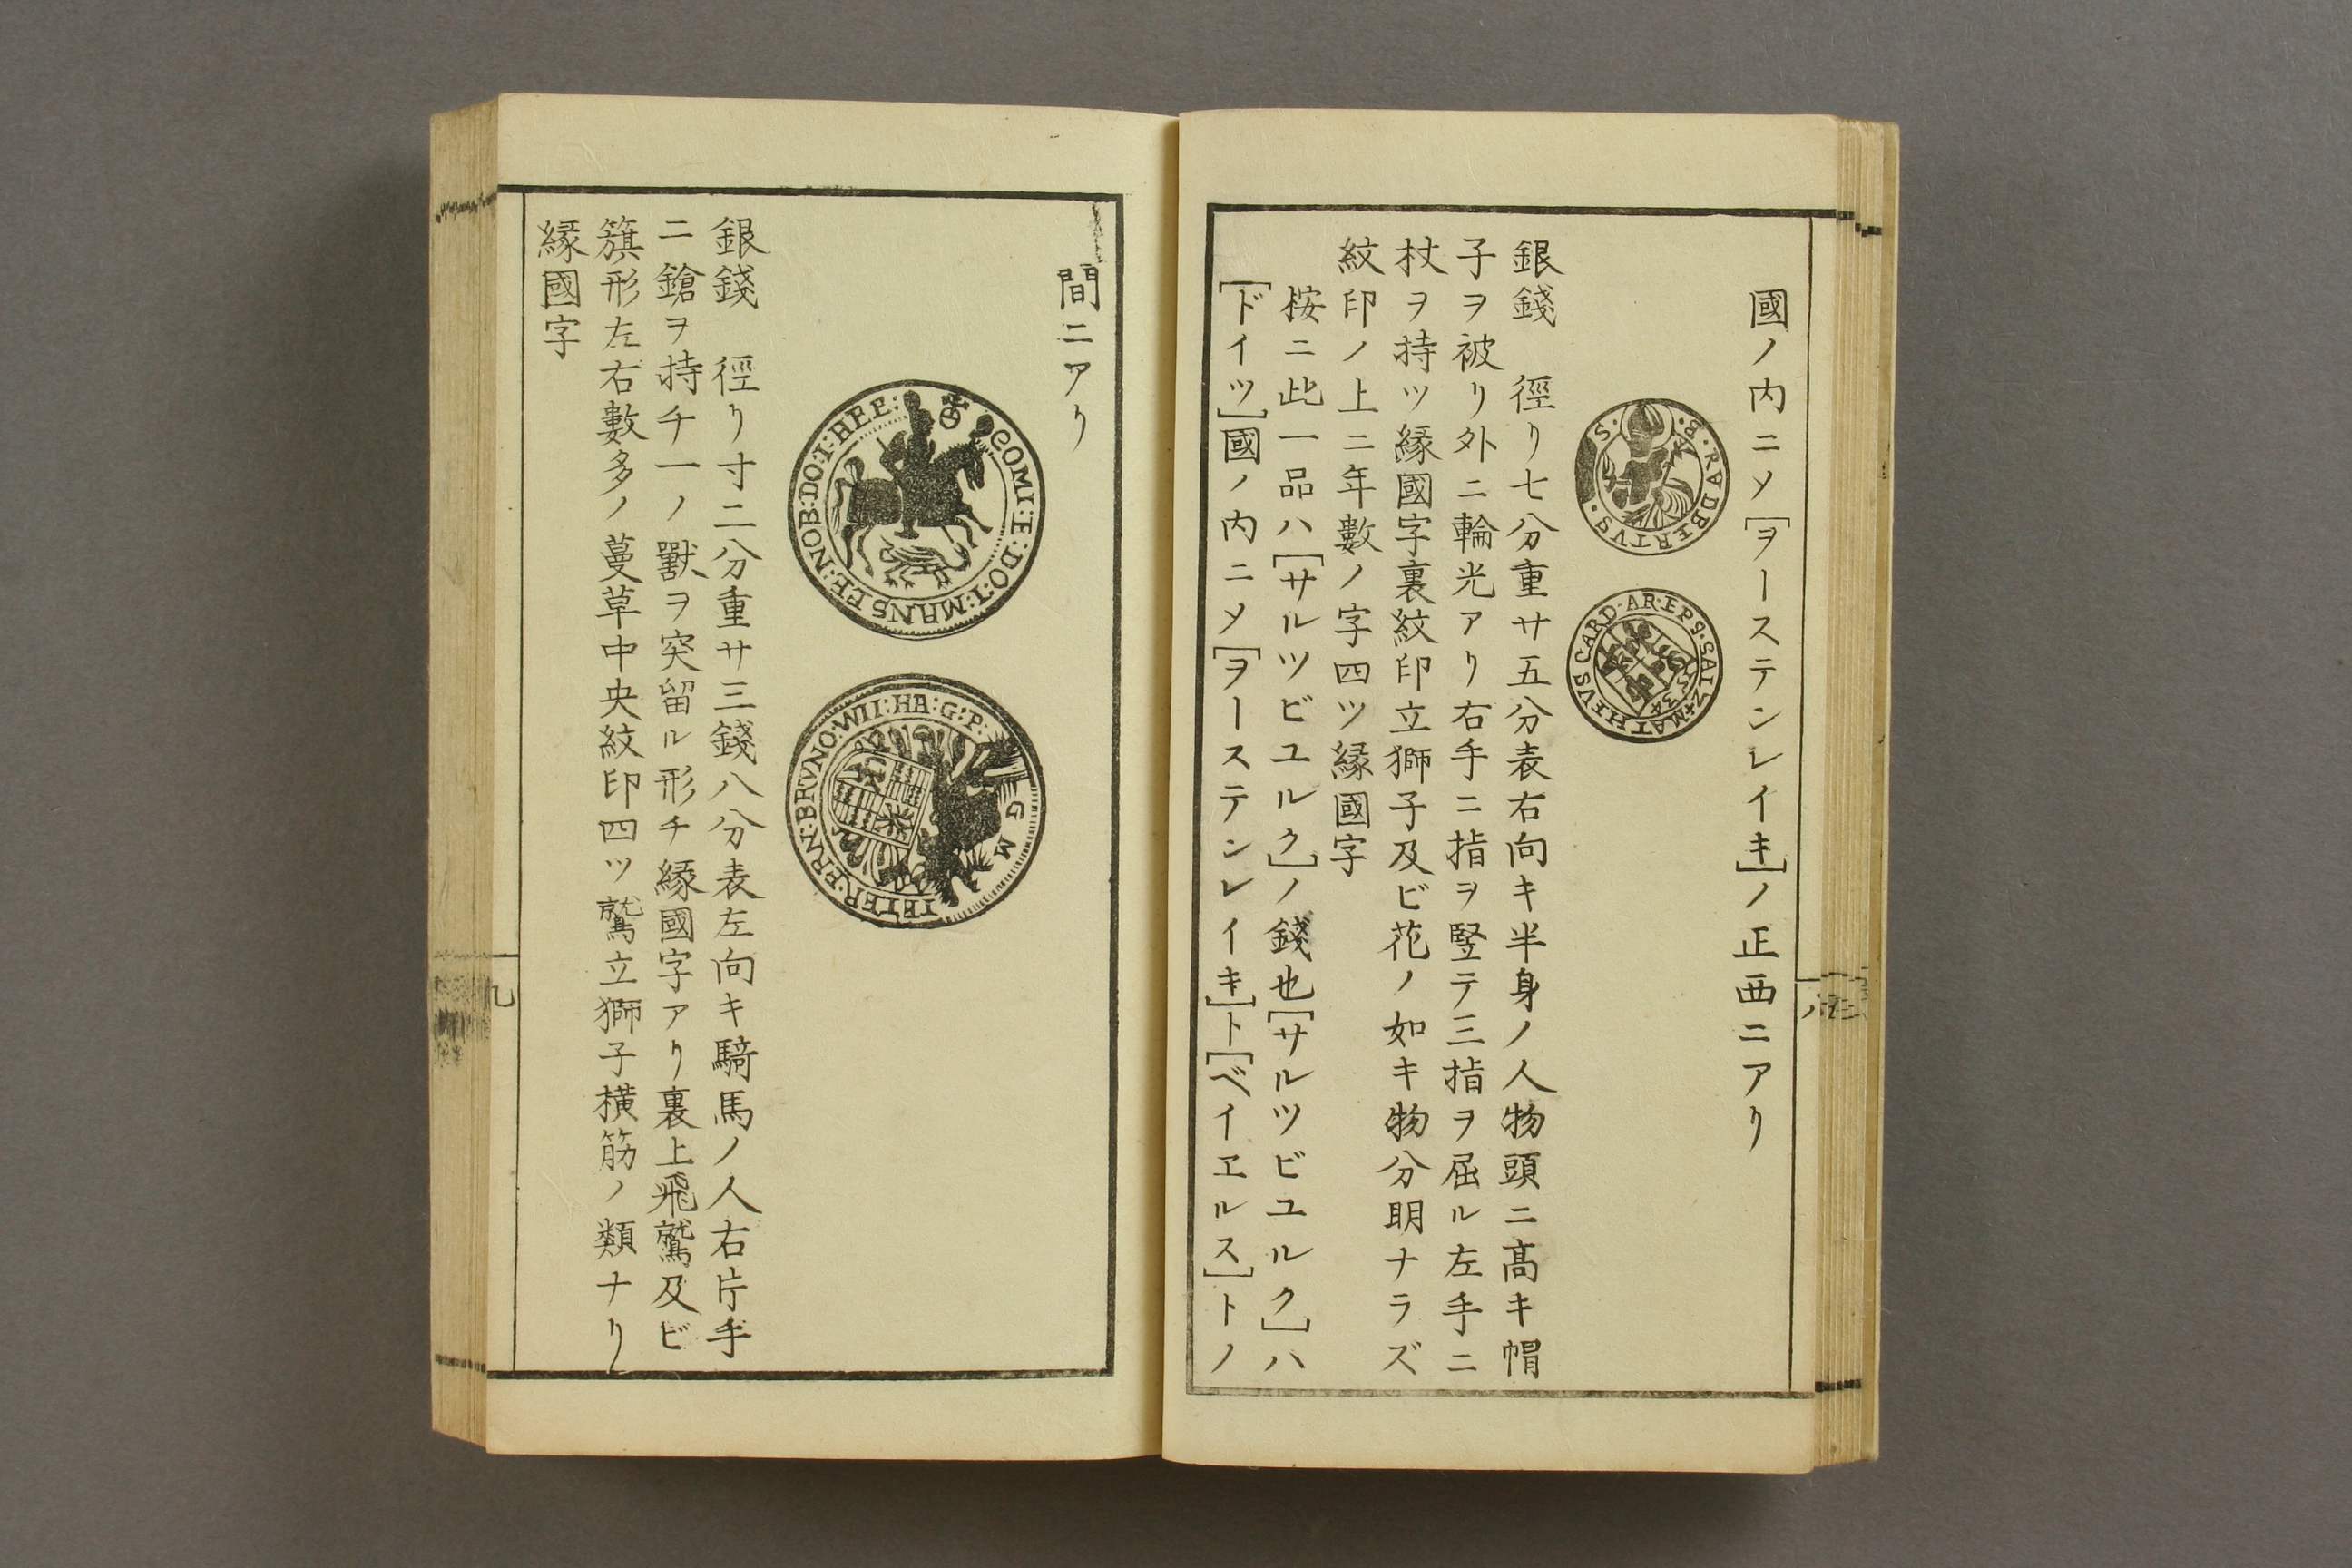 國ノ内ニ〆[ヲーステンレイキ]ノ正西ニアリ
S·B·RADBERTVS·
CARD·AR·EPS·SALZ+MATHEVS
銀錢 徑リ七分重サ五分表右向キ半身ノ人物頭ニ髙キ帽
子ヲ被リ外ニ輪光アリ右手ニ指ヲ竪テ三指ヲ屈ル左手ニ
杖ヲ持ツ縁國字裏紋印立獅子及ビ花ノ如キ物分明ナラズ
紋印ノ上ニ年數ノ字四ツ縁國字
桉ニ此一品ハ[サルツビユルク]ノ錢也[サルツビユルク]ハ
[ドイツ]國ノ内ニ〆[ヲーステンレイキ]ト[ベイヱルス]トノ
間ニアリ
COMI:E:DO:I:MANSFE:NOB:DO:I:HEE:
PETER:ERN:BRVNO:WII:HA:G:P: G M
銀錢 徑リ寸二分重サ三錢八分表左向キ騎馬ノ人右片手
ニ鎗ヲ持チ一ノ獸ヲ突留ル形チ縁國字アリ裏上飛鷲及ビ
籏形左右數多ノ蔓草中央紋印四ツ鷲立獅子橫筋ノ類ナリ
縁國字